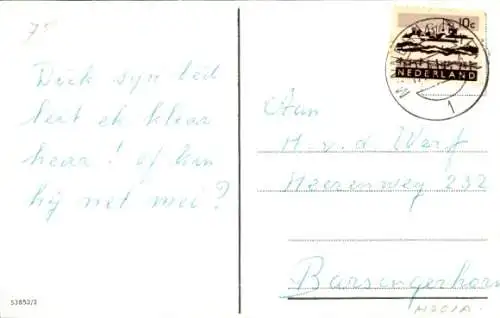 75
Dick syn bêd
leit ek klear
hear! of kin
hij net mei?
10c
NEDERLAND
1
Aan
H. v. d Werf
Heerenweg 232
Barsingerhorn
53852/2